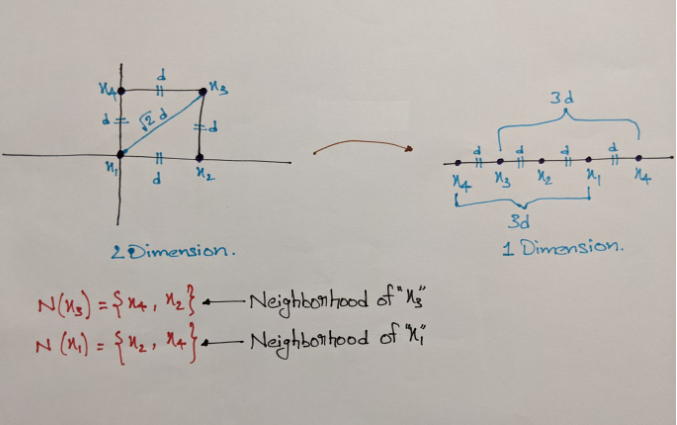 x₄ d x₃
d √2 d d
x₁ d x₂
2 Dimension.
3d
d d d d
x₄ x₃ x₂ x₁ x₄
3d
1 Dimension.
N(x₃) = {x₄, x₂} ← Neighborhood of "x₃"
N(x₁) = {x₂, x₄} ← Neighborhood of "x₁"